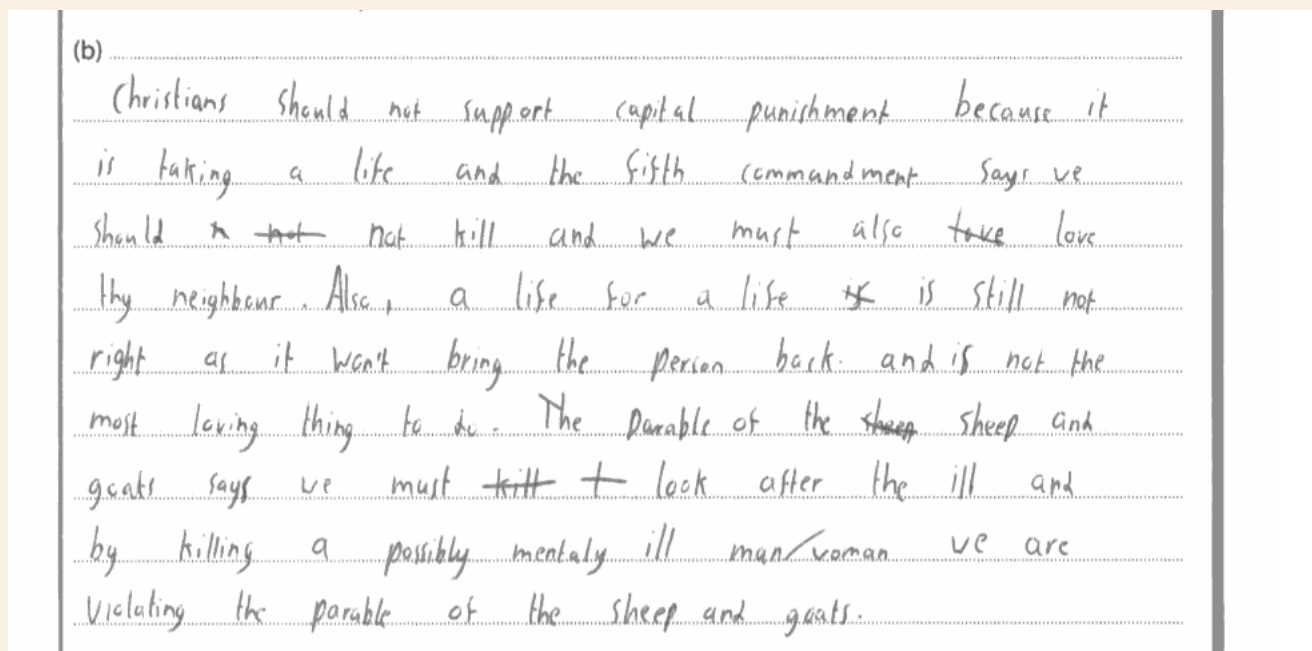 (b)
Christians should not support capital punishment because it
is taking a life and the fifth commandment says we
should not kill and we must also love
thy neighbour. Also, a life for a life is still not
right as it won't bring the person back. and is not the
most loving thing to do. The Parable of the sheep and
goats says we must look after the ill and
by killing a possibly mentaly ill man/woman we are
violating the parable of the sheep and goats.